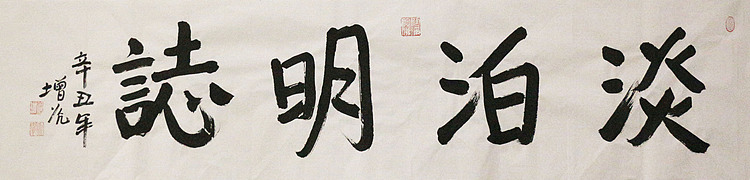 淡泊明誌
辛丑年
增沇